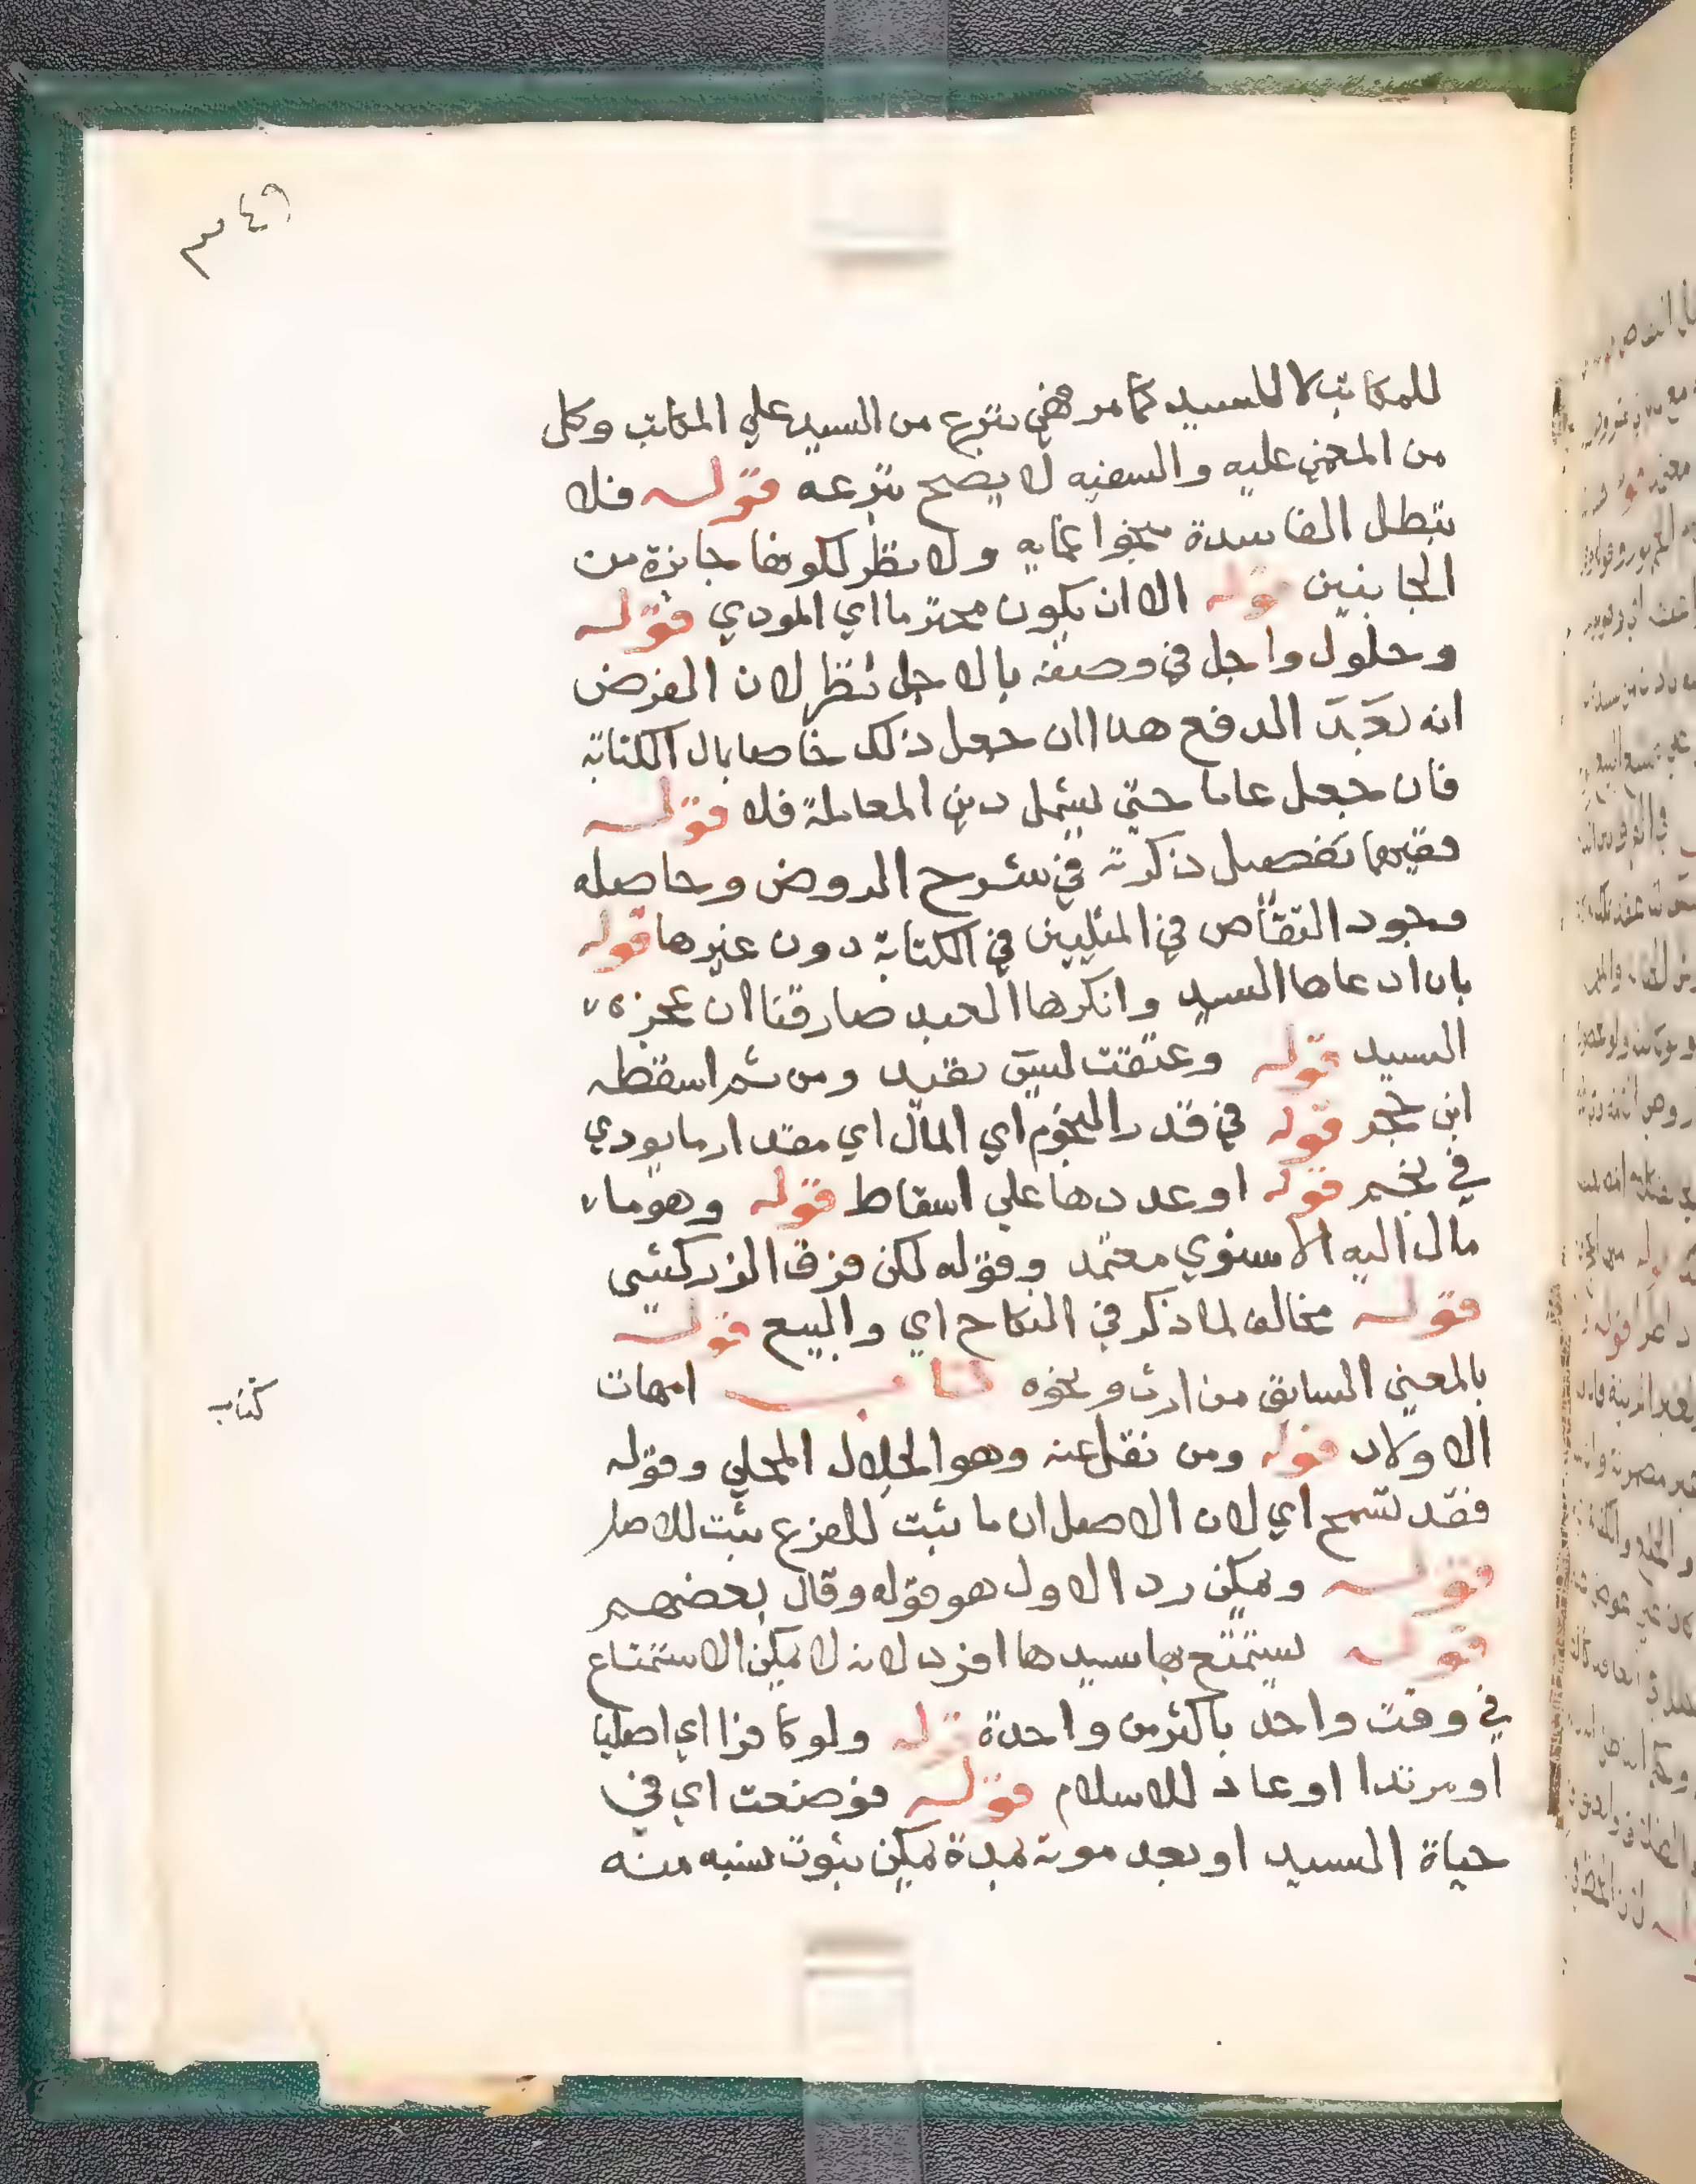 ٣٤٩
للمكاتب لا للسيد كما مر فهي تبرع من السيد علي المكاتب وكل
من المغمي عليه والسفيه لا يصح تبرعه قوله فلا
تبطل الفاسدة بنحو اغمايه ولا نظر لكونها جايزة من
الجانبين قوله الا ان يكون محترما اي المودي قوله
وحلول واجل في وصفه بالاجل نظر لان الفرض
انه بعد الدفع هذا ان جعل ذلك خاصا بمال الكتابة
فان جعل عاما حتي يشمل دين المعاملة فلا قوله
ففيهما تفصيل ذكرته في شرح الروض وحاصله
وجود التقاص في المثليين في الكتابة دون غيرها قوله
بان ادعاها السيد وانكرها العبد صار قنا ان عجزه
السيد قوله وعتقت ليس بقيد ومن ثم اسقطه
ابن حجر قوله في قدر النجوم اي المال اي مقدار ما يودي
في نجم قوله او عددها علي اسقاط قوله وهو ما
مال اليه الاسنوي معتمد وقوله لكن فرق الزركشي
قوله مخالف لما ذكر في النكاح اي والبيع قوله
بالمعني السابق من ارث ونحوه كتاب امهات
كتاب
الاولاد قوله ومن نقل عنه وهو الجلال المحلي وقوله
فقد تسمح اي لان الاصل ان ما ثبت للفرع يثبت للاصل
قوله ويمكن رد الاول هو قوله وقال بعضهم
قوله يستمتع بها سيدها افرد لانه لا يمكن الاستمتاع
في وقت واحد باكثر من واحدة قوله ولو كافرا اي اصليا
او مرتدا او عاد للاسلام قوله فوضعت اي في
حياة السيد او بعد موته بمدة يمكن ثبوت نسبه منه